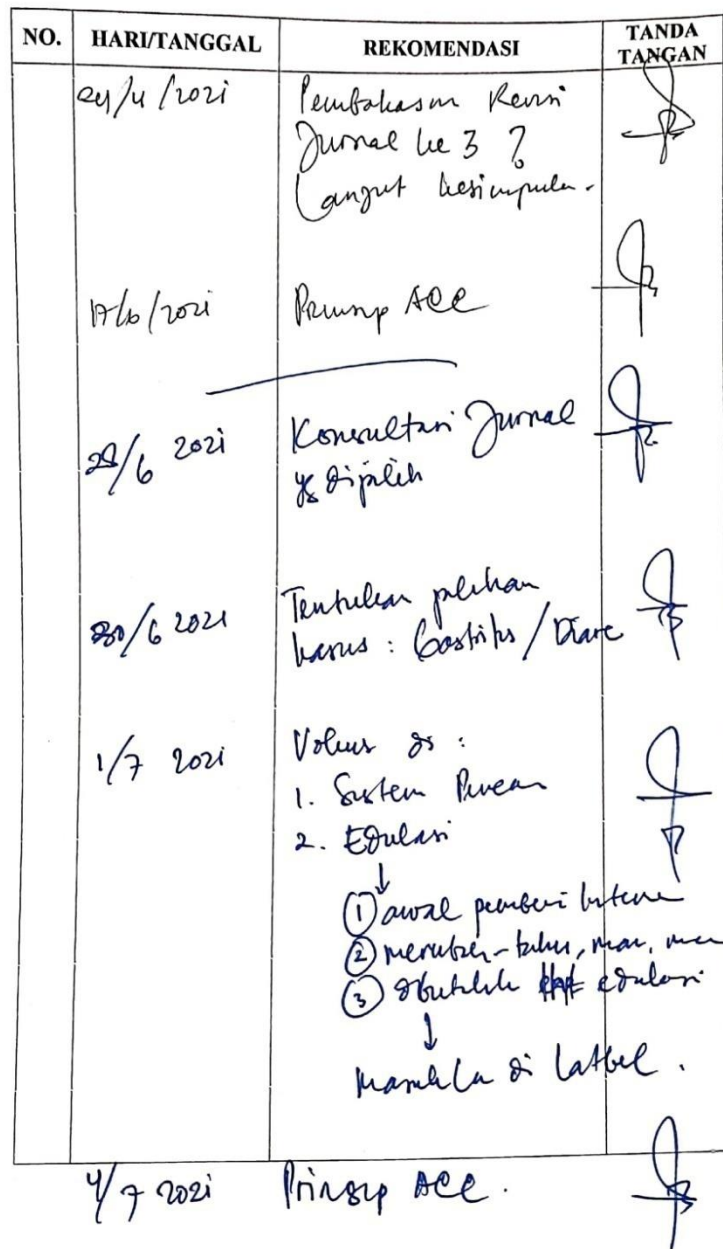 NO. HARI/TANGGAL REKOMENDASI TANDA TANGAN
24/4/2021 Pembahasan Revisi
Jurnal ke 3 ?
Lanjut kesimpulan.
17/6/2021 Prinsip ACC
28/6 2021 Konsultasi Jurnal
yg dipilih
30/6 2021 Tentukan pilihan
kasus : Gastritis / Diare
1/7 2021 di :
1. Sistem
2. Edukasi
↓
① awal
② tahu, mau,
③ edukasi
↓
di Latbel.
4/7 2021 Prinsip ACC.